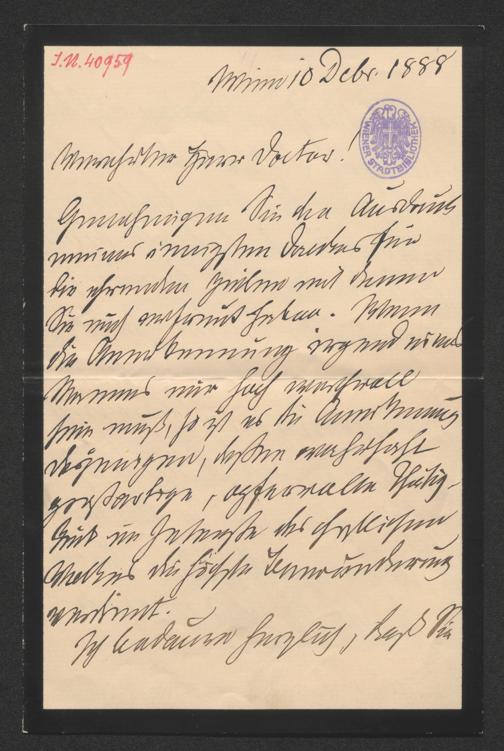 I.N. 40959
Wien 10 Debr. 1888
WIENER STADTBIBLIOTHEK
Verehrter Herr Doctor!
Genehmigen Sie den Ausdruck
meines innigsten Dankes für
die ehrenden Zeilen mit denen
Sie mich erfreut haben. Wenn
die Anerkennung irgend eines
Mannes mir hoch werthvoll
sein muß, so ist es die Anerkennung
desjenigen, dessen wahrhaft
großartige, opfervolle Thätig-
keit im Interesse des
die höchste Bewunderung
verdient.
Ich bedaure herzlich, daß Sie